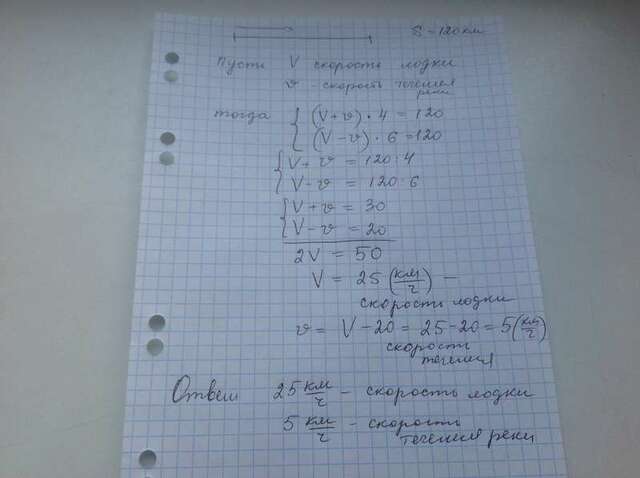 S = 120 км
Пусть V скорость лодки
v - скорость течения
реки
тогда { (V + v) · 4 = 120
(V - v) · 6 = 120
{ V + v = 120 : 4
V - v = 120 : 6
{ V + v = 30
V - v = 20
2V = 50
V = 25 (км/ч) —
скорость лодки
v = V - 20 = 25 - 20 = 5 (км/ч)
скорость
течения
Ответ 25 км/ч - скорость лодки
5 км/ч - скорость
течения реки